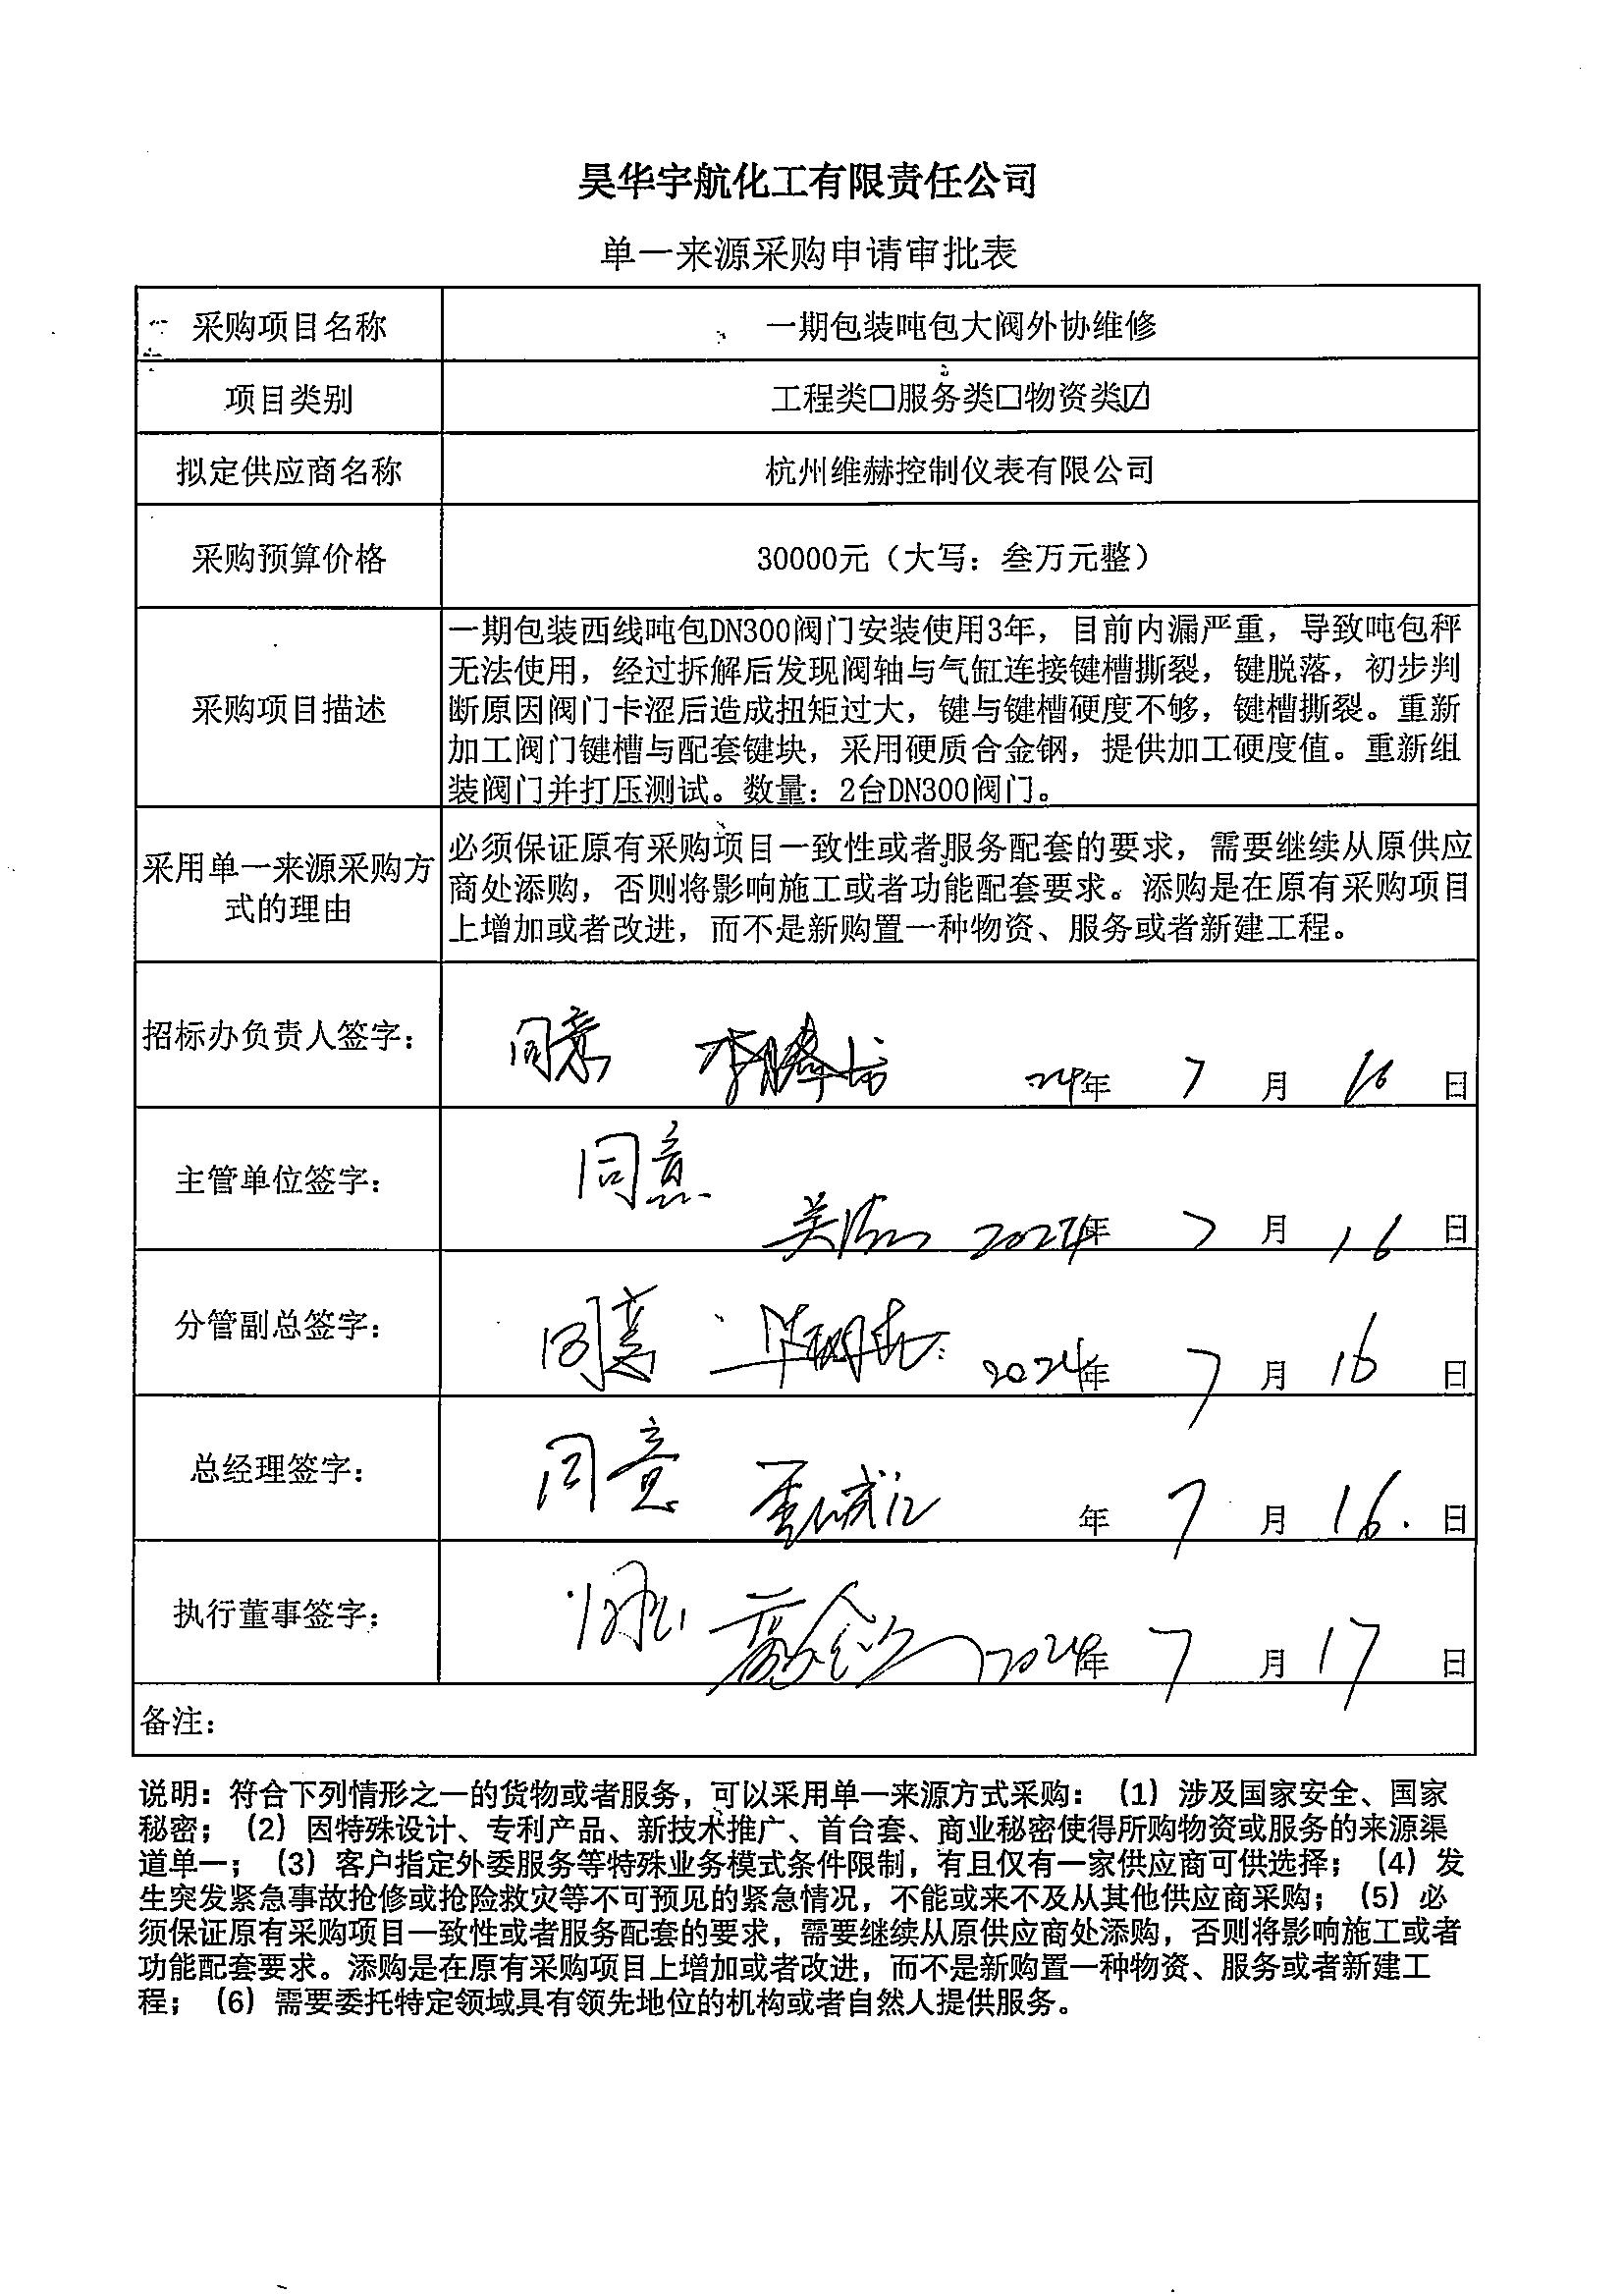 昊华宇航化工有限责任公司
单一来源采购申请审批表
采购项目名称
一期包装吨包大阀外协维修
项目类别
工程类□服务类□物资类☑
拟定供应商名称
杭州维赫控制仪表有限公司
采购预算价格
30000元（大写：叁万元整）
采购项目描述
一期包装西线吨包DN300阀门安装使用3年，目前内漏严重，导致吨包秤
无法使用，经过拆解后发现阀轴与气缸连接键槽撕裂，键脱落，初步判
断原因阀门卡涩后造成扭矩过大，键与键槽硬度不够，键槽撕裂。重新
加工阀门键槽与配套键块，采用硬质合金钢，提供加工硬度值。重新组
装阀门并打压测试。数量：2台DN300阀门。
采用单一来源采购方
式的理由
必须保证原有采购项目一致性或者服务配套的要求，需要继续从原供应
商处添购，否则将影响施工或者功能配套要求。添购是在原有采购项目
上增加或者改进，而不是新购置一种物资、服务或者新建工程。
招标办负责人签字：
同意 24年 7 月 16 日
主管单位签字：
同意
2024年 7 月 16 日
分管副总签字：
同意 2024年 7 月 16 日
总经理签字：
同意 年 7 月 16. 日
执行董事签字：
2024年 7 月 17 日
备注：
说明：符合下列情形之一的货物或者服务，可以采用单一来源方式采购：（1）涉及国家安全、国家
秘密；（2）因特殊设计、专利产品、新技术推广、首台套、商业秘密使得所购物资或服务的来源渠
道单一；（3）客户指定外委服务等特殊业务模式条件限制，有且仅有一家供应商可供选择；（4）发
生突发紧急事故抢修或抢险救灾等不可预见的紧急情况，不能或来不及从其他供应商采购；（5）必
须保证原有采购项目一致性或者服务配套的要求，需要继续从原供应商处添购，否则将影响施工或者
功能配套要求。添购是在原有采购项目上增加或者改进，而不是新购置一种物资、服务或者新建工
程；（6）需要委托特定领域具有领先地位的机构或者自然人提供服务。